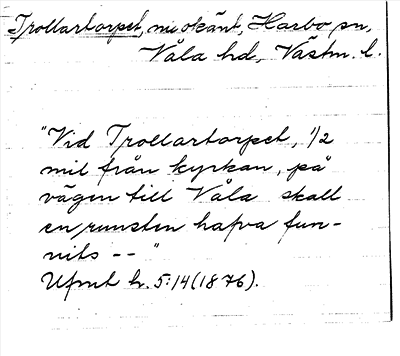 Trollartorpet, nu okänt, Harbo sn,
Våla hd, Västm. l.
"Vid Trollartorpet, 1/2
mil från kyrkan, på
vägen till Våla skall
en runsten hafva fun-
nits -- "
Ufmt h. 5:14 (1876).